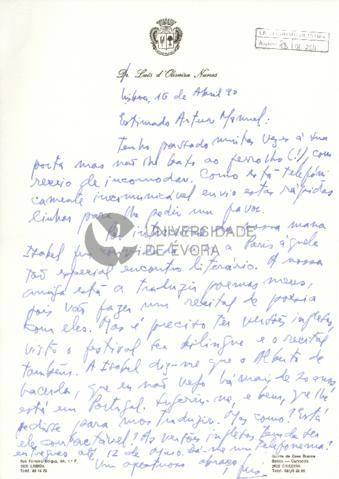 Dr. Luís d'Oliveira Nunes
Lisboa, 16 de Abril 90
Estimado Artur Manuel:
Tenho passado muitas vezes à sua
porta mas não lhe bato ao ferrolho (!), com
receio de incomodar. Como está telefoni
camente incomunicável envio estas rápidas
linhas para lhe pedir um favor.
nossa mana
Isabel a Paris àquele
tão especial encontro literário. A nossa
amiga está a traduzir poemas meus,
pois vão fazer um recital de poesia
com eles. Mas é preciso ter versões inglesas,
visto o festival ser bilingue e o recital
também. A Isabel diz-me que o Alberto de
Lacerda, que eu não vejo há mais de 20 anos,
está em Portugal. Sugeriu-me, e bem, que lhe
pedisse para mos traduzir. Mas como? Está
ele contactável? As versões inglesas têm de ser
entregues até 12 de Dê-me um telefonema!
Um abraço
Luís
UNIVERSIDADE
DE ÉVORA
2800 LISBOA
Quinta da Casa Branca